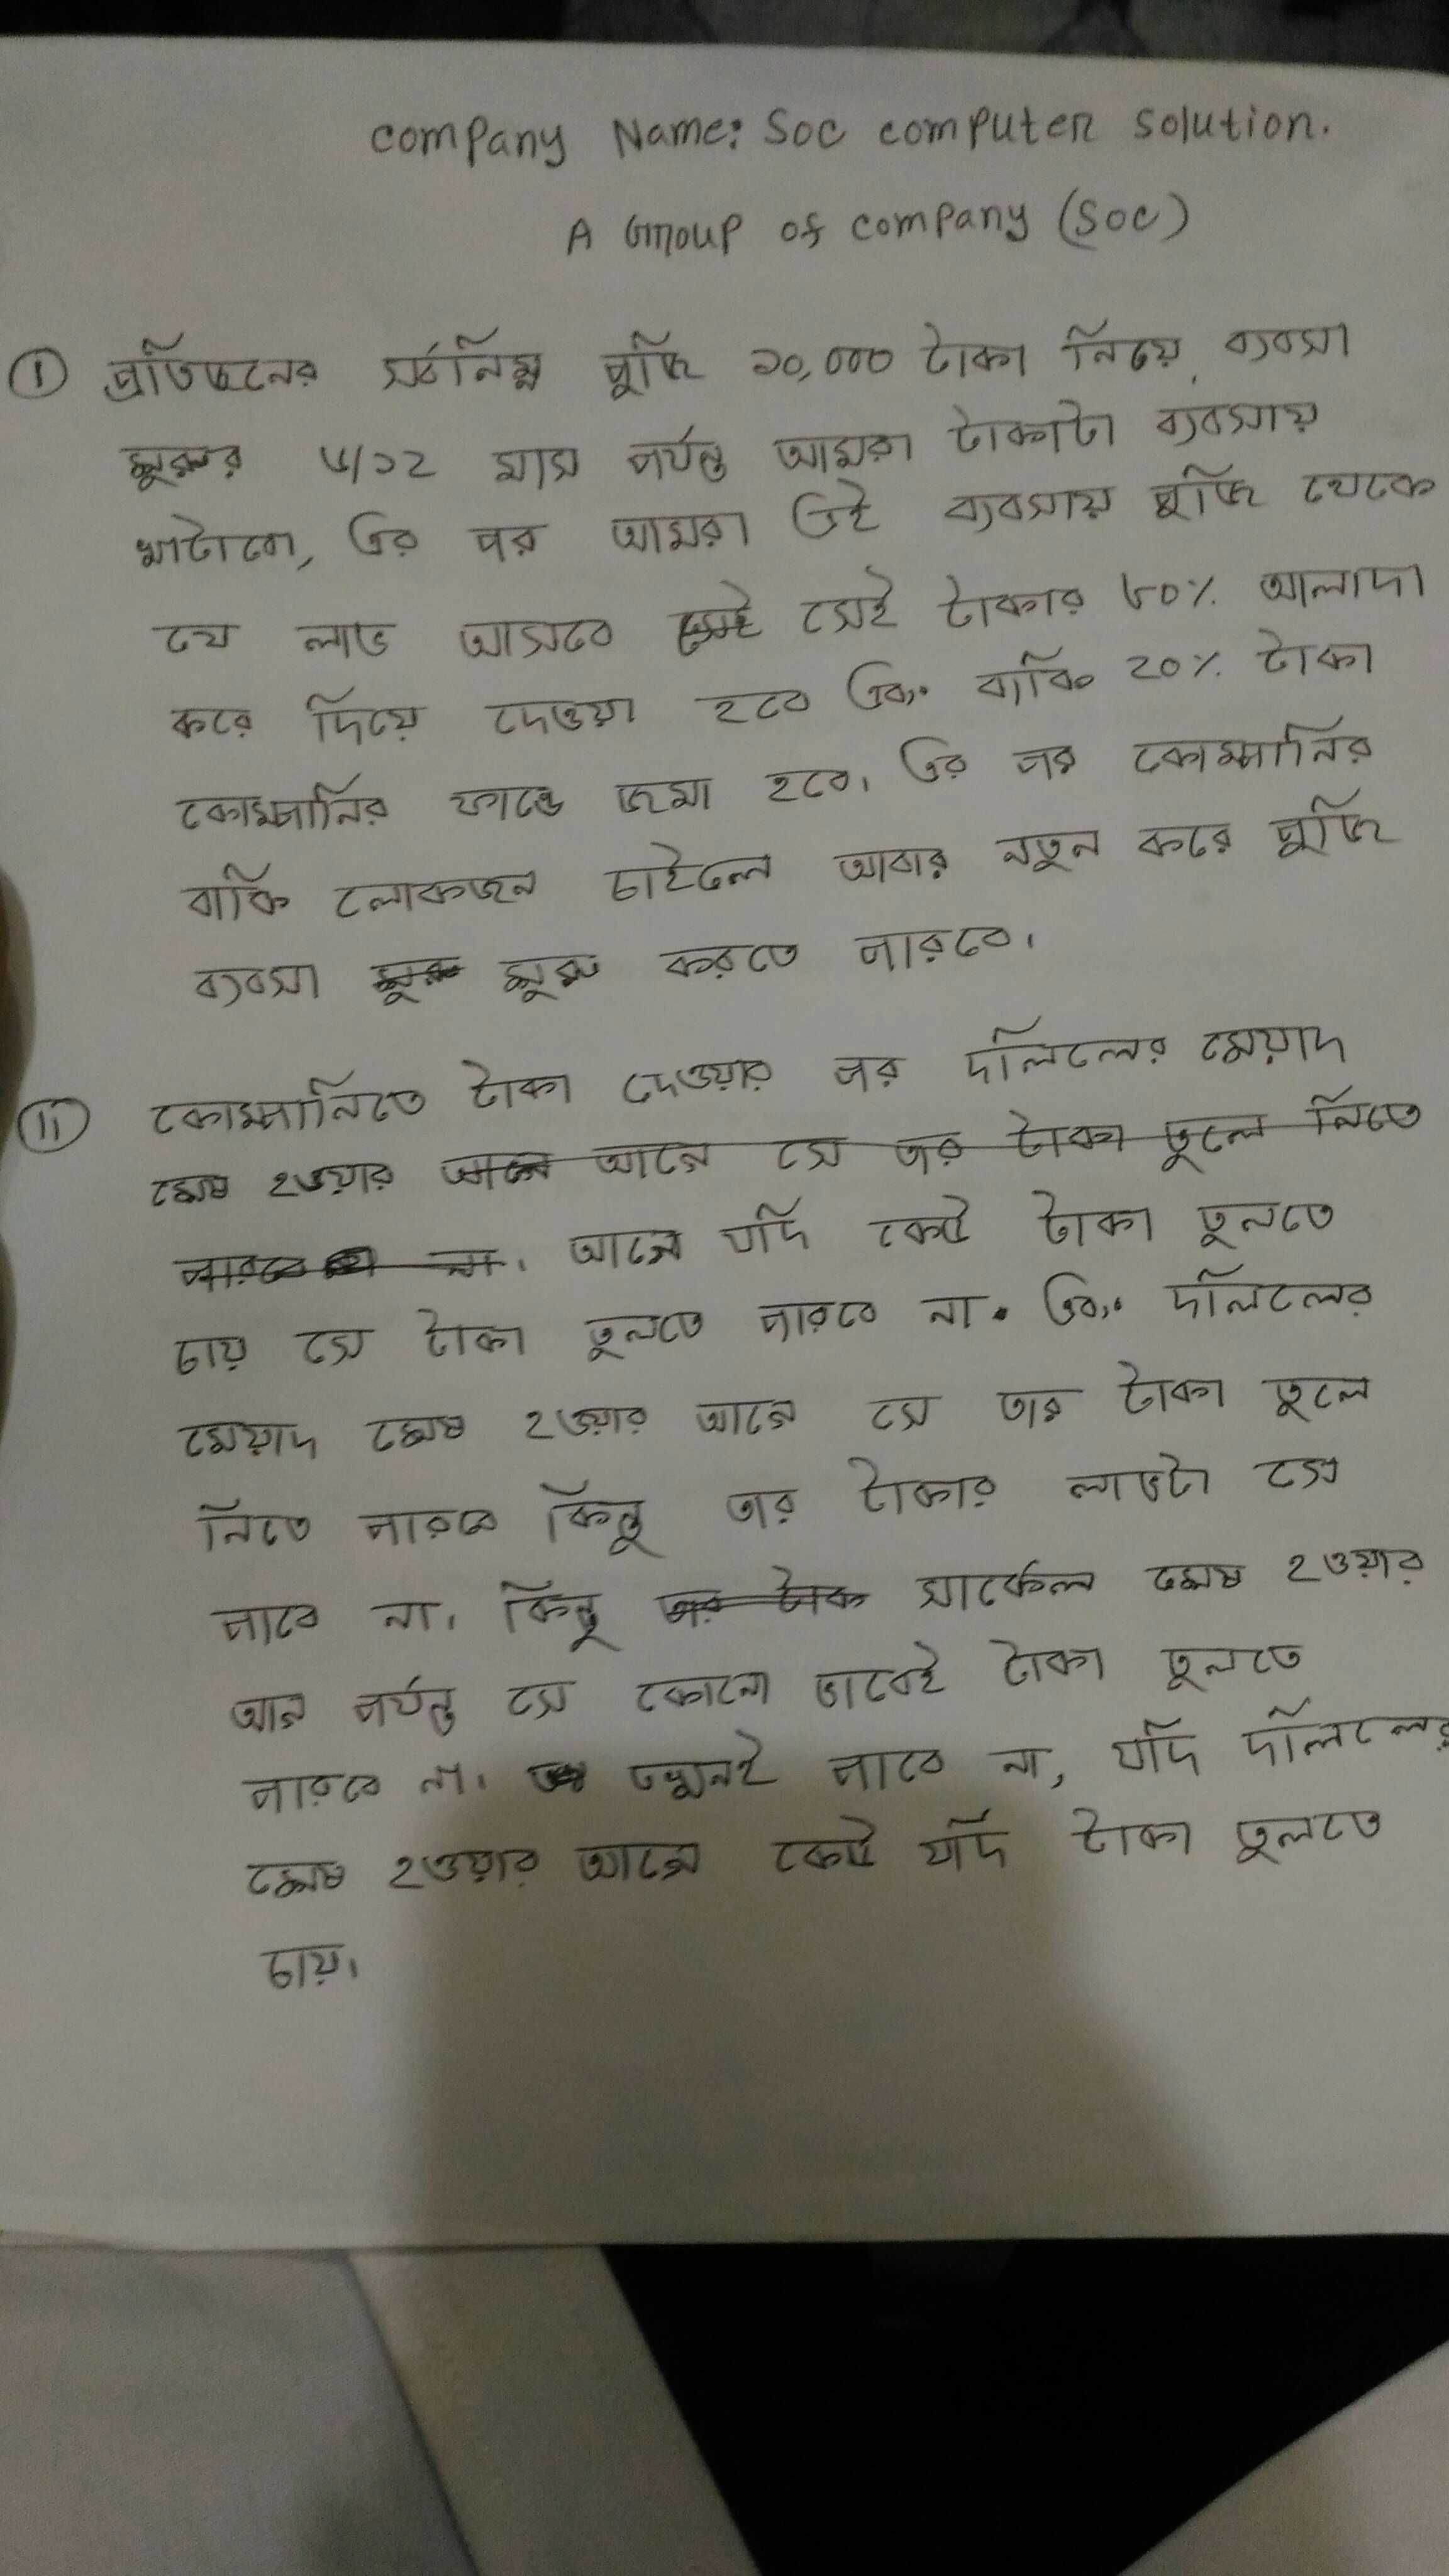 Company Name: Soc computer solution.
A Group of company (Soc)
① প্রতিজনের সর্বনিম্ন পুঁজি ১০,০০০ টাকা নিয়ে, ব্যবসা
শুরুর ৬/১২ মাস পর্যন্ত আমরা টাকাটা ব্যবসায়
খাটাবো, এর পর আমরা এই ব্যবসায় পুঁজি থেকে
যে লাভ আসবে সেই সেই টাকার ৮০% আলাদা
করে দিয়ে দেওয়া হবে এবং বাকি ২০% টাকা
কোম্পানির ফান্ডে জমা হবে। এর পর কোম্পানির
বাকি লোকজন চাইলে আবার নতুন করে পুঁজি
ব্যবসা শুরু শুরু করতে পারবে।
⑪ কোম্পানিতে টাকা দেওয়ার পর দলিলের মেয়াদ
শেষ হওয়ার আগে আগে সে তার টাকা তুলে নিতে
পারবে না। আগে যদি কেউ টাকা তুলতে
চায় সে টাকা তুলতে পারবে না। এবং দলিলের
মেয়াদ শেষ হওয়ার আগে সে তার টাকা তুলে
নিতে পারবে কিন্তু তার টাকার লাভটা সে
পাবে না। কিন্তু তার টাকা সার্কেল শেষ হওয়ার
আগ পর্যন্ত সে কোনো ভাবেই টাকা তুলতে
পারবে না। তখনই পাবে না, যদি দলিলের
শেষ হওয়ার আগে কেউ যদি টাকা তুলতে
চায়।